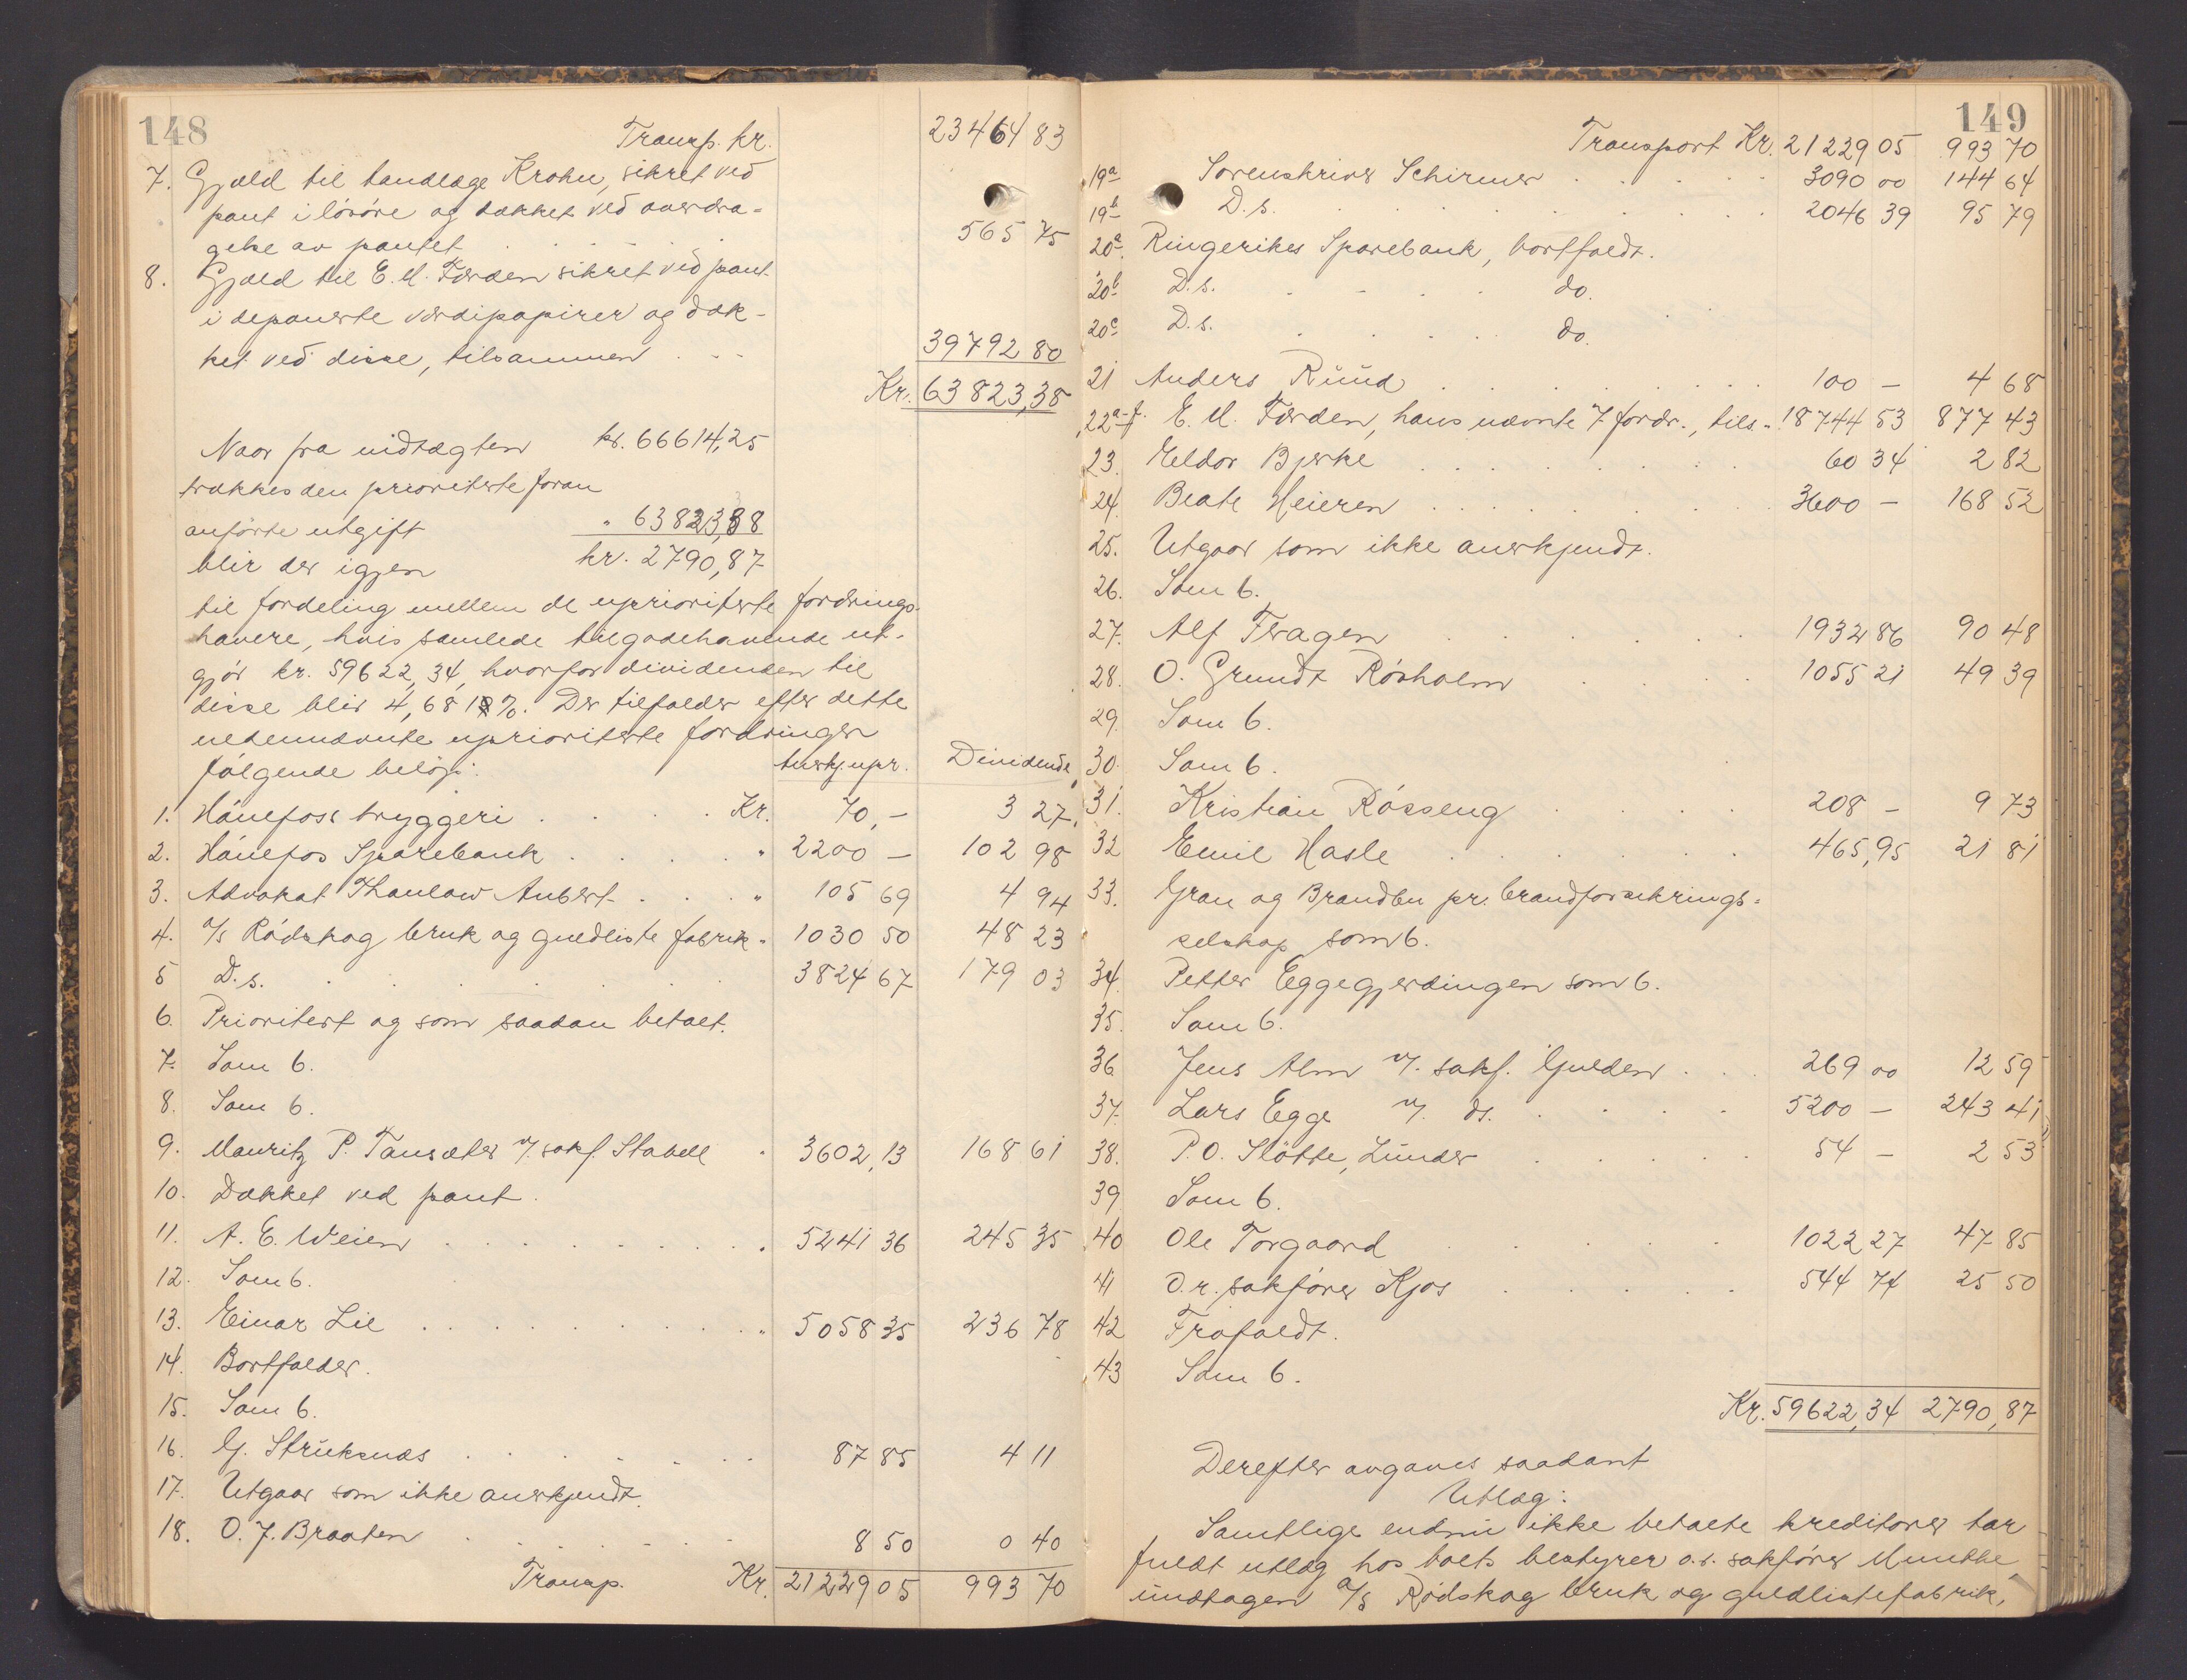 148
Transp. kr. 23464 83
7. Gjæld til tandlæge Krohn, sikret ved
pant i lösöre og dækket ved overdra-
gelse av pantet . . . . 565 75
8. Gjæld til E. M. Færden sikret ved pant
i deponerte værdipapirer og dæk-
ket ved disse, tilsammen . . . 39792 80
Kr. 63823,38
Naar fra indtægten kr. 66614,25
trækkes den prioriterte foran
anförte utgift " 63823,38
blir der igjen kr. 2790,87
til fordeling mellem de uprioriterte fordrings-
havere, hvis samlede tilgodehavende ut-
gjör kr. 59622,34, hvorfor dividenden til
disse blir 4,681%. Der tilfalder efter dette
nedennævnte uprioriterte fordringer
følgende belöp: Anerkj. upr. Dividende
1. Hönefoss bryggeri . . . . Kr. 70,- 3 27
2. Hönefos Sparebank . . . . " 2200 - 102 98
3. Advokat Thaulow Aubert . . . " 105 69 4 94
4. A/S Rödskog bruk og guldliste fabrik " 1030 50 48 23
5 D. s. . . . . . . 3824 67 179 03
6. Prioritert og som saadan betalt.
7. Som 6.
8. Som 6.
9. Mauritz P. Tansæter v/ sakf. Stabell " 3602,13 168 61
10. Dækket ved pant.
11. A. E. Weien . . . . . . . . . 5241 36 245 35
12. Som 6.
13. Einar Lie . . . . . . . . . " 5058 35 236 78
14. Bortfalder.
15. Som 6.
16. G. Struksnæs . . . . . . 87 85 4 11
17. Utgaar som ikke anerkjendt.
18. O. J. Braaten . . . . . . 8 50 0 40
Transp. Kr. 21229 05 993 70
149
Transport Kr. 21229 05 993 70
19a Sorenskriver Schirmer . . . . . 3090 00 144 64
19b D. s. . . . . . . . . . 2046 39 95 79
20a Ringerikes Sparebank, bortfaldt.
20b D. s. . . . . do.
20c D. s. . . . . do.
21 Anders Ruud . . . . . . . . . 100 - 4 68
22a-f. E. M. Færden, hans nævnte 7 fordr., tils. 18744 53 877 43
23. Eldor Bjerke . . . . . . . 60 34 2 82
24. Beate Heieren . . . . . . . . 3600 - 168 52
25. Utgaar som ikke anerkjendt.
26. Som 6.
27. Alf Fragen . . . . . . 1932 86 90 48
28. O. Grundt Rösholm . . . . 1055 21 49 39
29. Som 6.
30. Som 6.
31. Kristian Rösseng . . . . 208 - 9 73
32 Emil Hasle . . . . . . . 465,95 21 81
33. Gran og Brandbu pr. brandforsikrings-
selskap som 6.
34. Petter Eggegjerdingen som 6.
35. Som 6.
36 Jens Alm v/. sakf. Gulden . . . 269 00 12 59
37. Lars Egge v/. ds. . . . . 5200 - 243 41
38. P. O. Slåtte, Lunder . . . . . 54 - 2 53
39 Som 6.
40 Ole Torgaard . . . . . 1022 27 47 85
41 O.r. sakförer Kjos . . . . . 544 74 25 50
42 Frafaldt.
43 Som 6.
Kr. 59622,34 2790,87
Derefter avgaves saadant
Utlæg:
Samtlige endnu ikke betalte kreditorer tar
fuldt utlæg hos boets bestyrer o.r. sakförer Munthe,
undtagen A/S Rödskog bruk og guldlistefabrik,